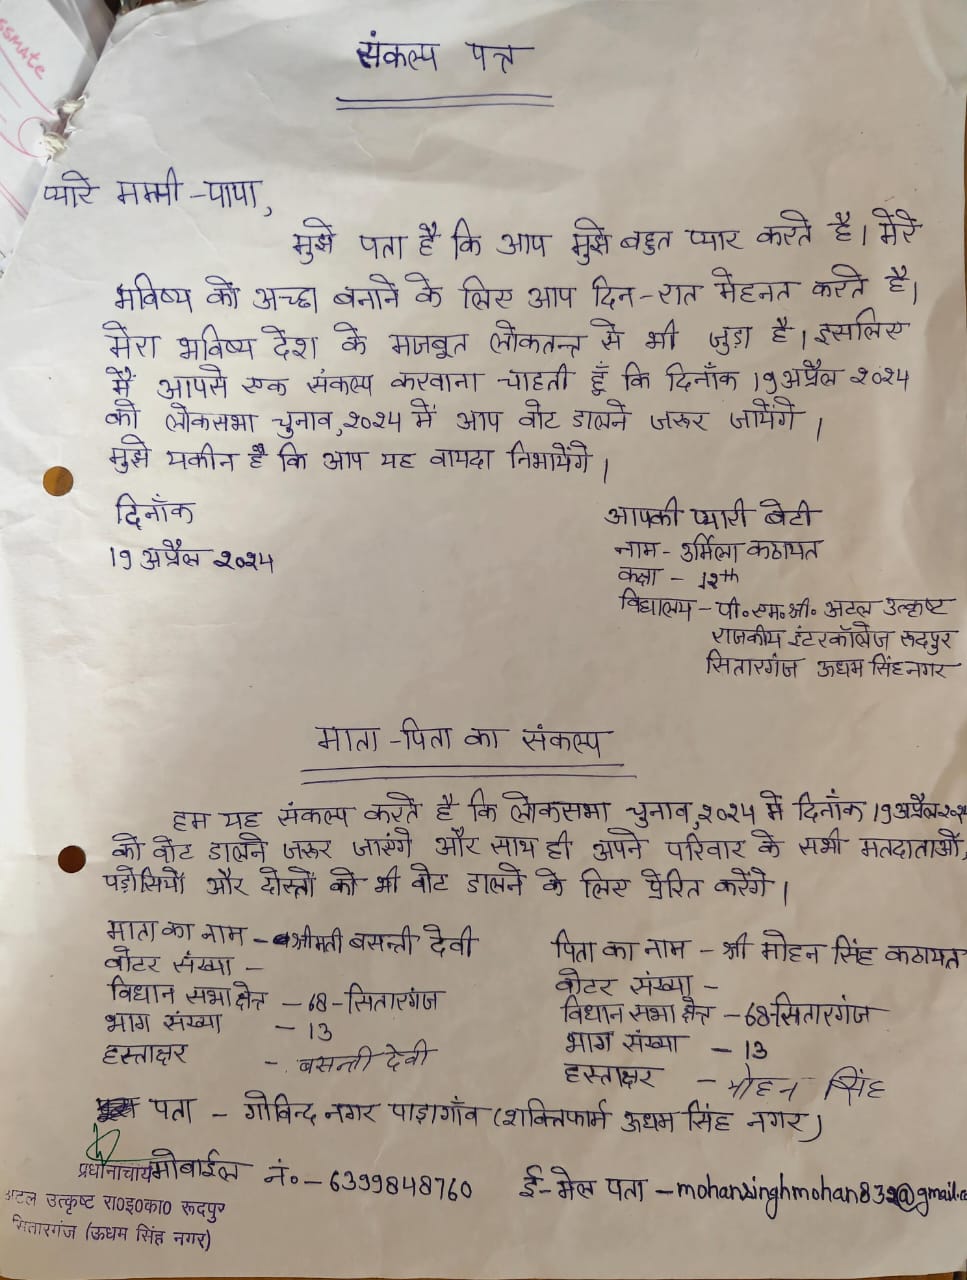 ssmate
संकल्प पत्र
प्यारे मम्मी-पापा,
मुझे पता है कि आप मुझे बहुत प्यार करते है। मेरे
भविष्य को अच्छा बनाने के लिए आप दिन-रात मेहनत करते है।
मेरा भविष्य देश के मजबूत लोकतन्त्र से भी जुड़ा है। इसलिए
मैं आपसे एक संकल्प करवाना चाहती हूँ कि दिनाँक 19 अप्रैल २०२४
को लोकसभा चुनाव, २०२४ में आप वोट डालने जरूर जायेंगे ।
मुझे यकीन है कि आप यह वायदा निभायेंगे ।
दिनाँक
19 अप्रैल २०२४
आपकी प्यारी बेटी
नाम - उर्मिला कठायत
कक्षा - 12th
विद्यालय - पी०एम०श्री० अटल उत्कृष्ट
राजकीय इंटरकॉलेज रूदपुर
सितारगंज ऊधम सिंह नगर
माता-पिता का संकल्प
हम यह संकल्प करते है कि लोकसभा चुनाव, २०२४ में दिनाँक 19 अप्रैल २०२४
को वोट डालने जरूर जाएंगे और साथ ही अपने परिवार के सभी मतदाताओं,
पड़ोसियों और दोस्तों को भी वोट डालने के लिए प्रेरित करेंगे ।
माता का नाम - श्रीमती बसन्ती देवी
वोटर संख्या -
विधान सभा क्षेत्र - 68-सितारगंज
भाग संख्या - 13
हस्ताक्षर - बसन्ती देवी
पिता का नाम - श्री मोहन सिंह कठायत
वोटर संख्या -
विधान सभा क्षेत्र - 68-सितारगंज
भाग संख्या - 13
हस्ताक्षर - मोहन सिंह
पता - गोविन्द नगर पाड़ागाँव (शक्तिफार्म ऊधम सिंह नगर)
मोबाईल नं० - 6399848760 ई-मेल पता - mohansinghmohan832@gmail.c
प्रधानाचार्य
अटल उत्कृष्ट रा०इ०का० रूदपुर
सितारगंज (ऊधम सिंह नगर)